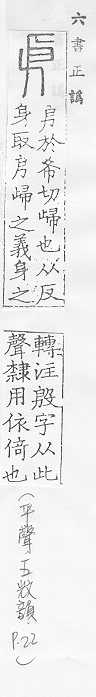 六書正譌
㐆於希切歸也从反
身㐆歸之義身之
轉注殷字从此
聲隸用依倚也
(平聲五微韻
P.22)